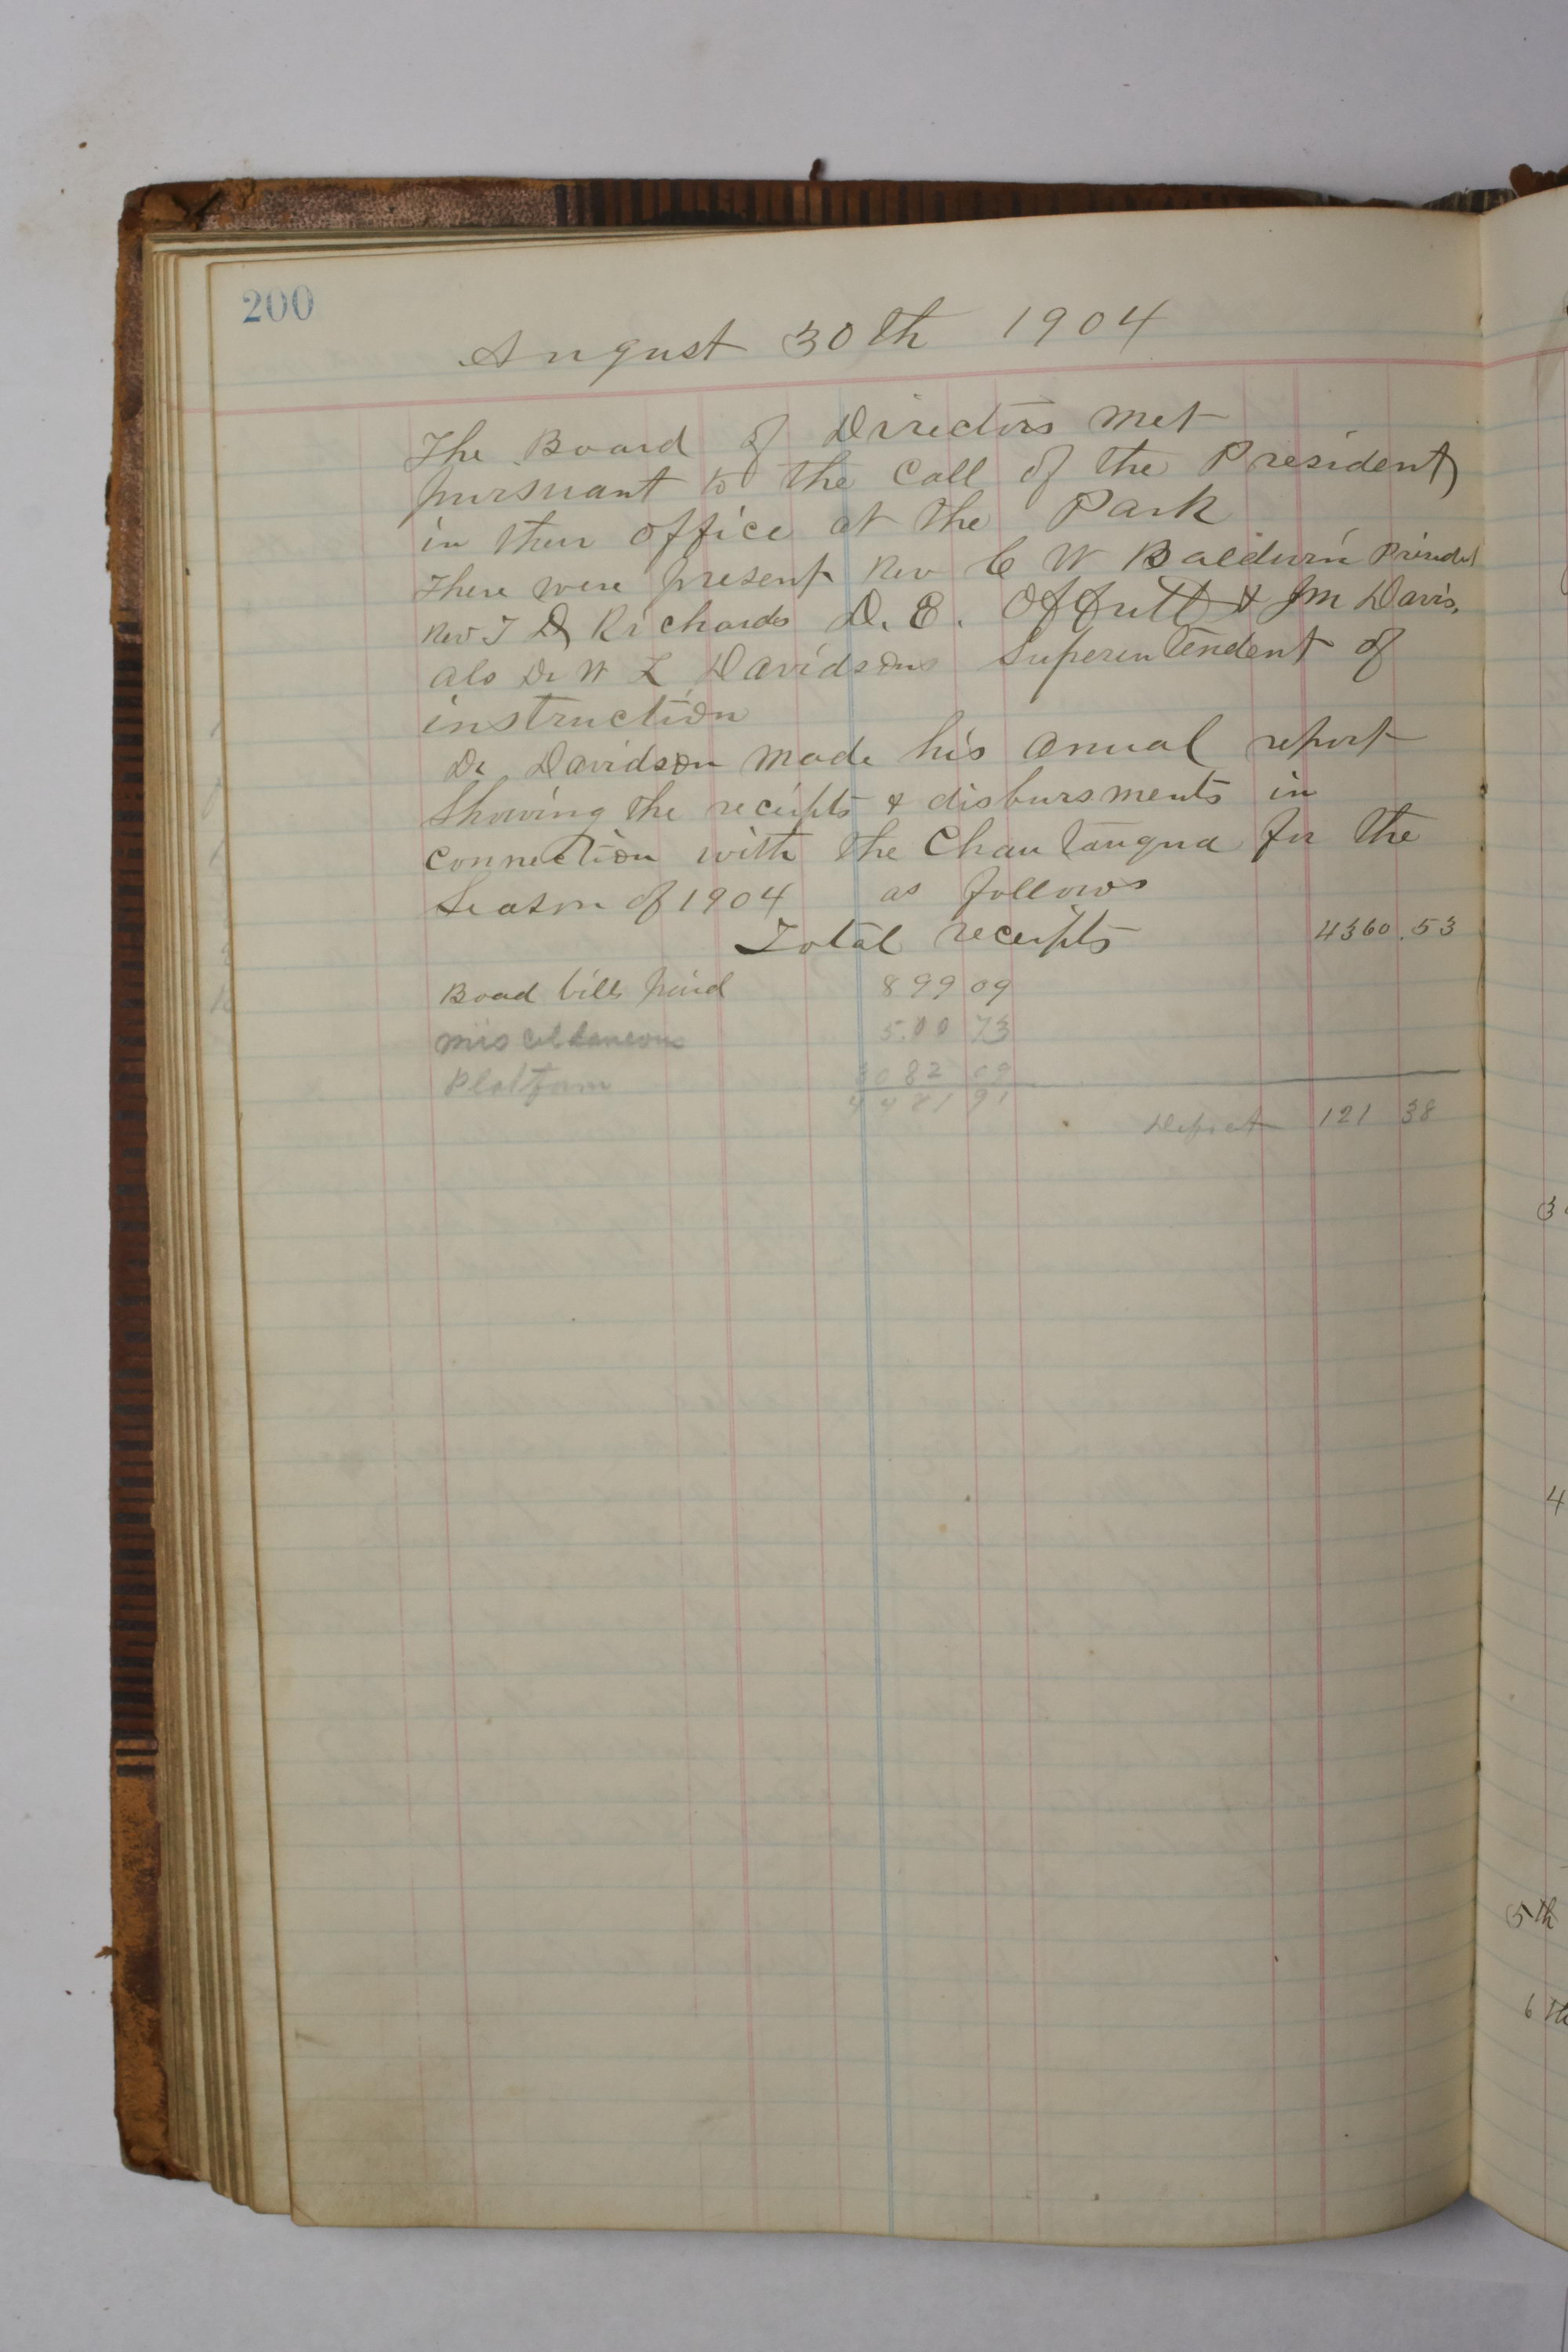 200
August 30th 1904
The Board of Directors met
pursuant to the call of the President
in their office at the Park
There were present Rev C W Baldwin President
Rev T D Richards D. E. Offutt & JM Davis,
als Dr W L Davidson Superentendent of
instruction
Dr Davidson made his anual report
Showing the receipts & disbursments in
connection with the Chautauqua for the
Season of 1904 as follows
Total receipts 4360.53
Boad bills paid 899 09
miscellaneous 5.00 73
Platform 3082 09
4481 91
Deficit 121 38
3
4
5th
6th